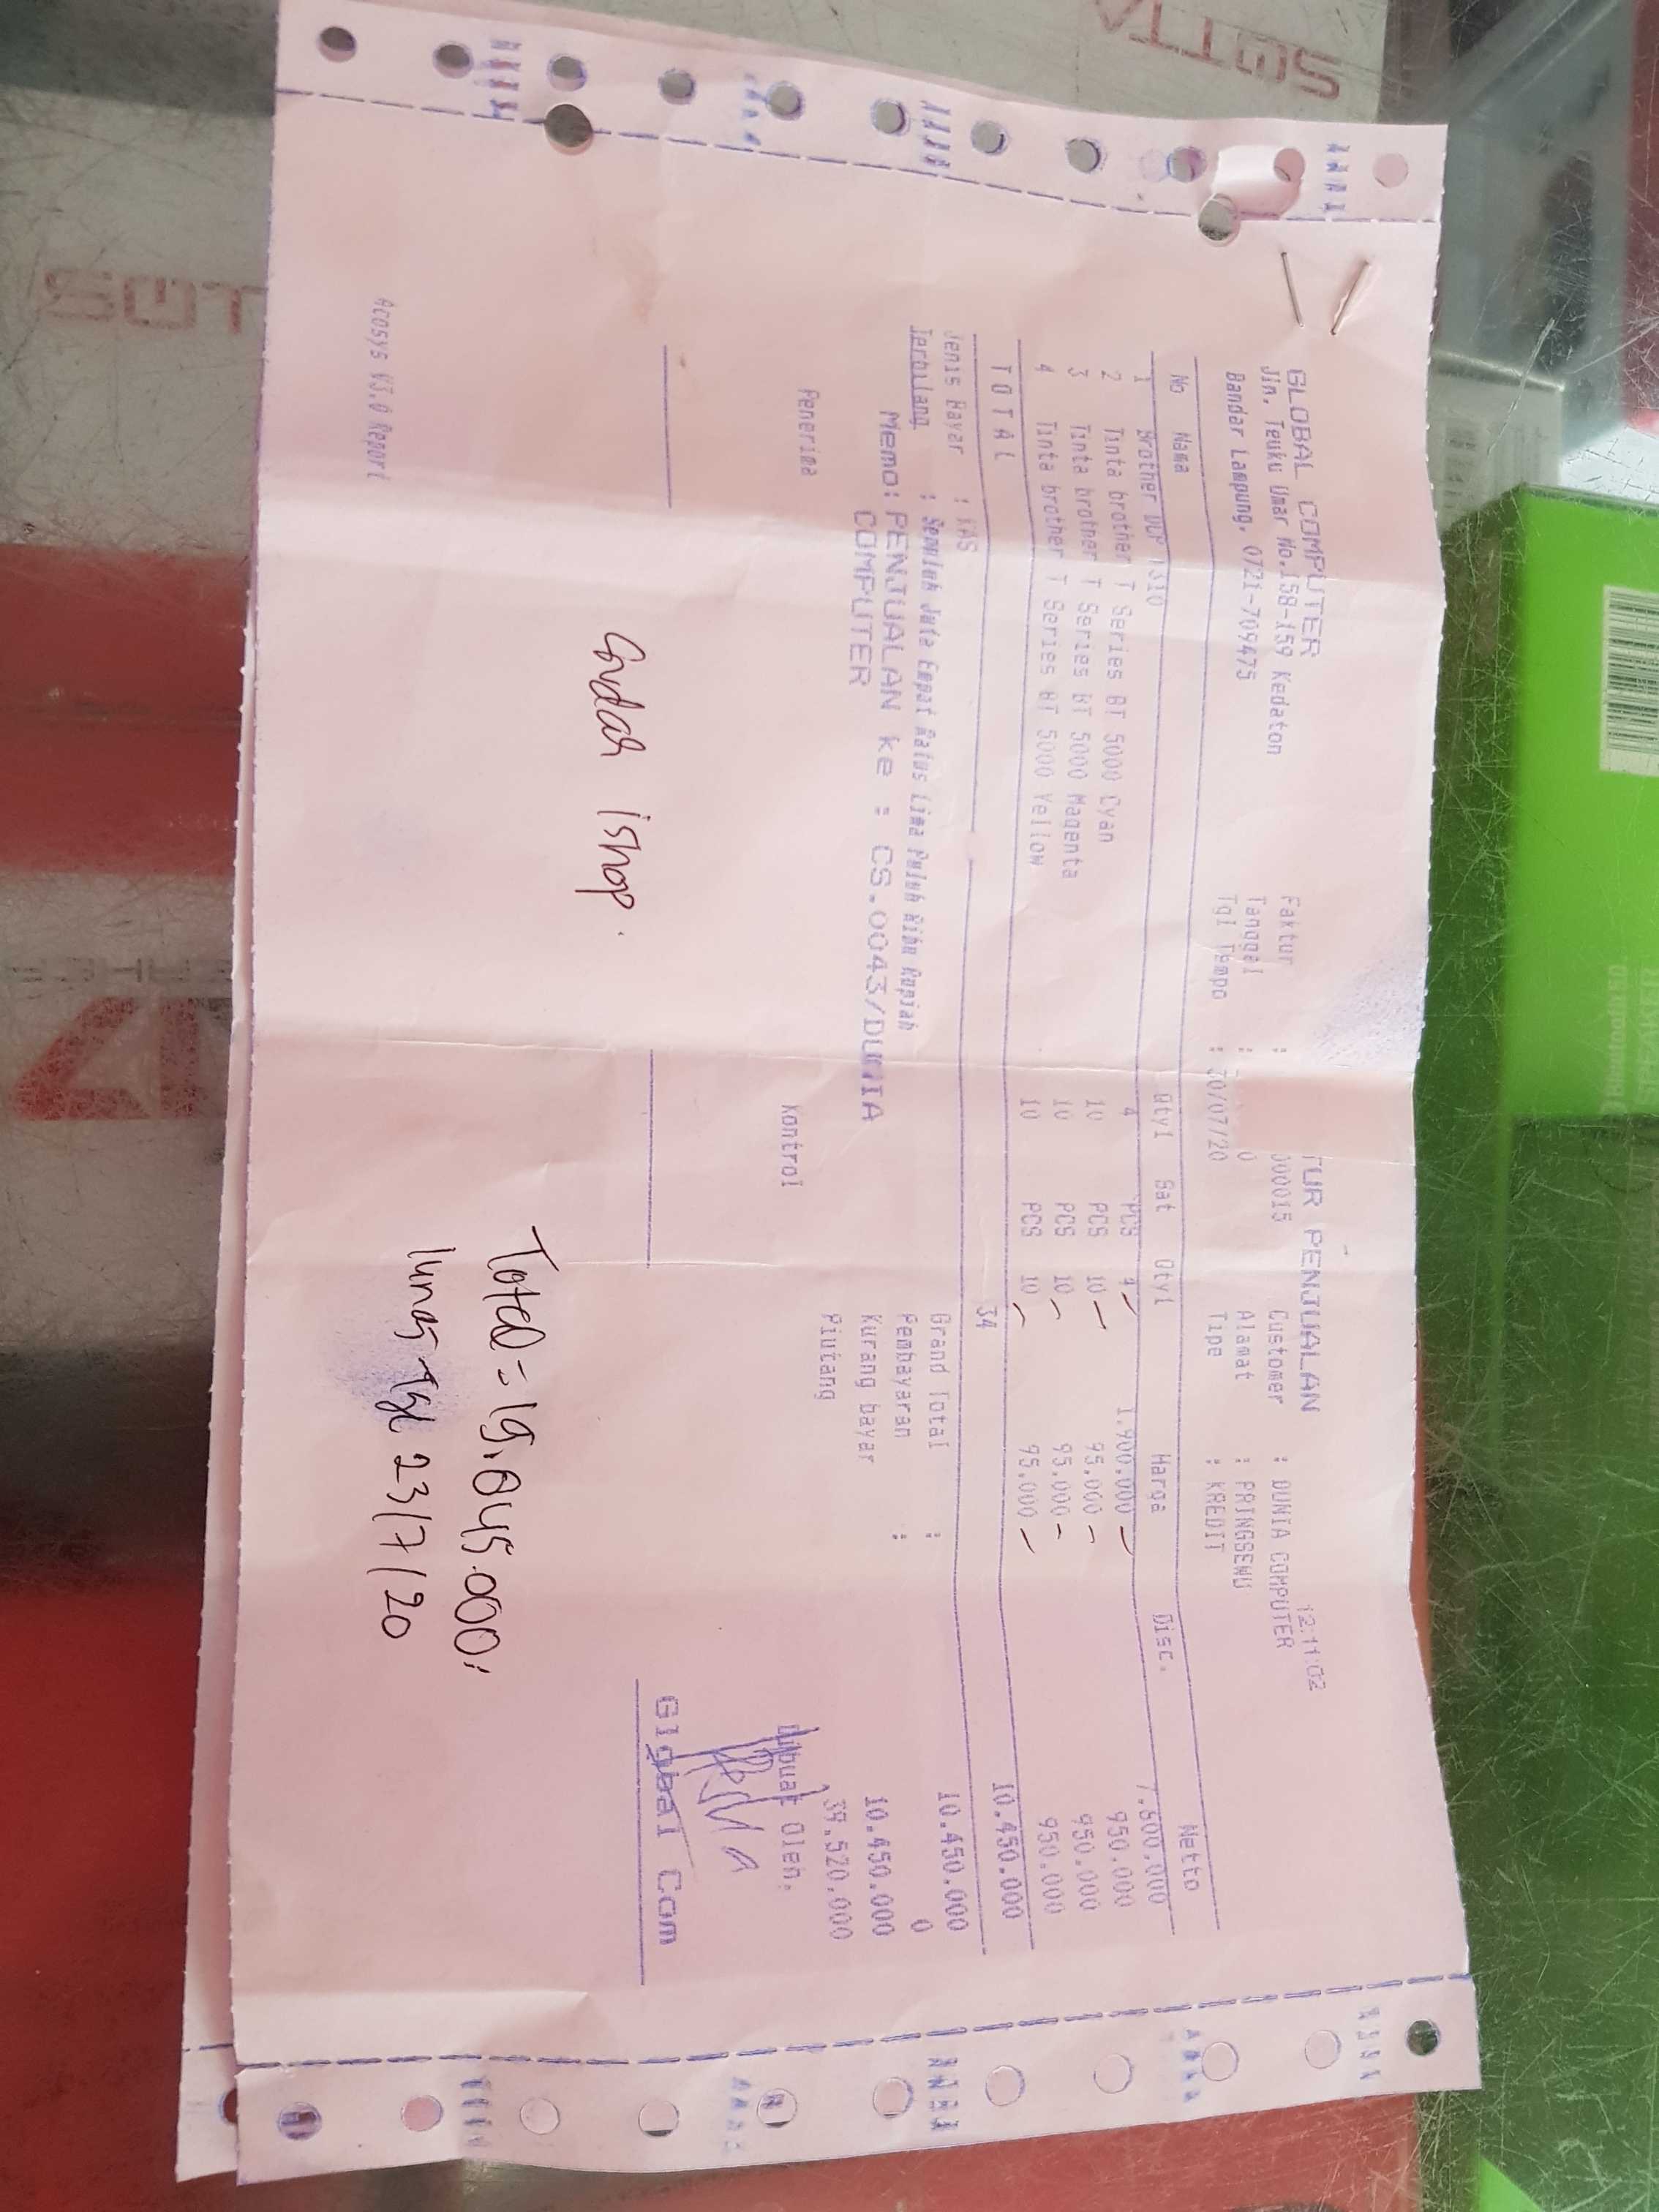 GLOBAL COMPUTER
TUR PENJUALAN
12:11:02
Jln. Teuku Umar No.158-159 Kedaton
Bandar Lampung, 0721-709475
Faktur : 000015
Tanggal : 0
Tgl Tempo : 30/07/20
Customer : DUNIA COMPUTER
Alamat : PRINGSEWU
Tipe : KREDIT
No Nama Qty1 Sat Qty1 Harga Disc. Netto
1 Brother DCP 310 4 PCS 4 1.900.000 7.600.000
2 Tinta brother T Series BT 5000 Cyan 10 PCS 10 95.000 950.000
3 Tinta brother T Series BT 5000 Magenta 10 PCS 10 95.000 950.000
4 Tinta brother T Series BT 5000 Yellow 10 PCS 10 95.000 950.000
T O T A L 34 10.450.000
Jenis Bayar : KAS
Terbilang : Sepuluh Juta Empat Ratus Lima Puluh Ribu Rupiah
Memo: PENJUALAN ke : CS.0043/DUNIA
COMPUTER
Grand Total : 10.450.000
Pembayaran : 0
Kurang bayar 10.450.000
Piutang 39.520.000
Penerima
Kontrol
Dibuat Oleh,
Global Com
ishop.
Total = 19.845.000
lunas Tgl 23/7/20
Acosys V3.0 Report